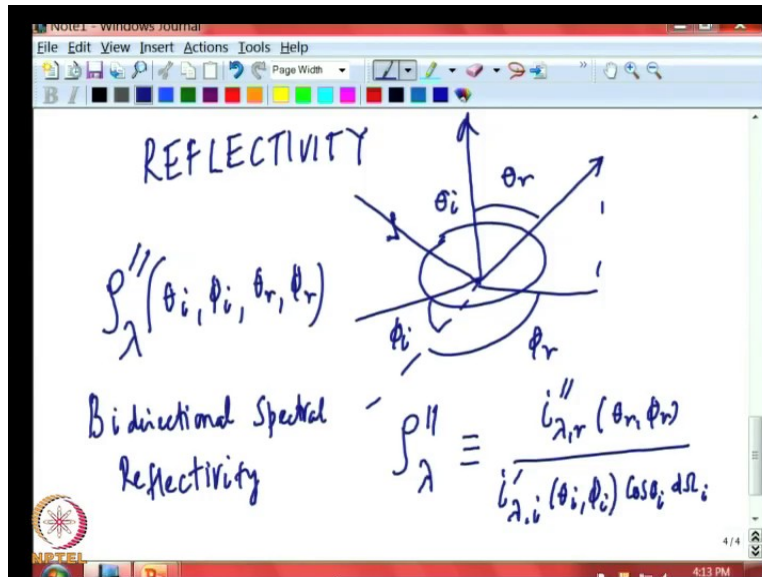 Note1 - Windows Journal
File Edit View Insert Actions Tools Help
Page Width
B I
REFLECTIVITY
θi θr
ρ''λ (θi, ϕi, θr, ϕr)
ϕi ϕr
Bidirectional Spectral
Reflectivity
ρ''λ ≡ i''λ,r (θr, ϕr)
i'λ,i (θi, ϕi) Cosθi dΩi
4/4
NPTEL
4:13 PM